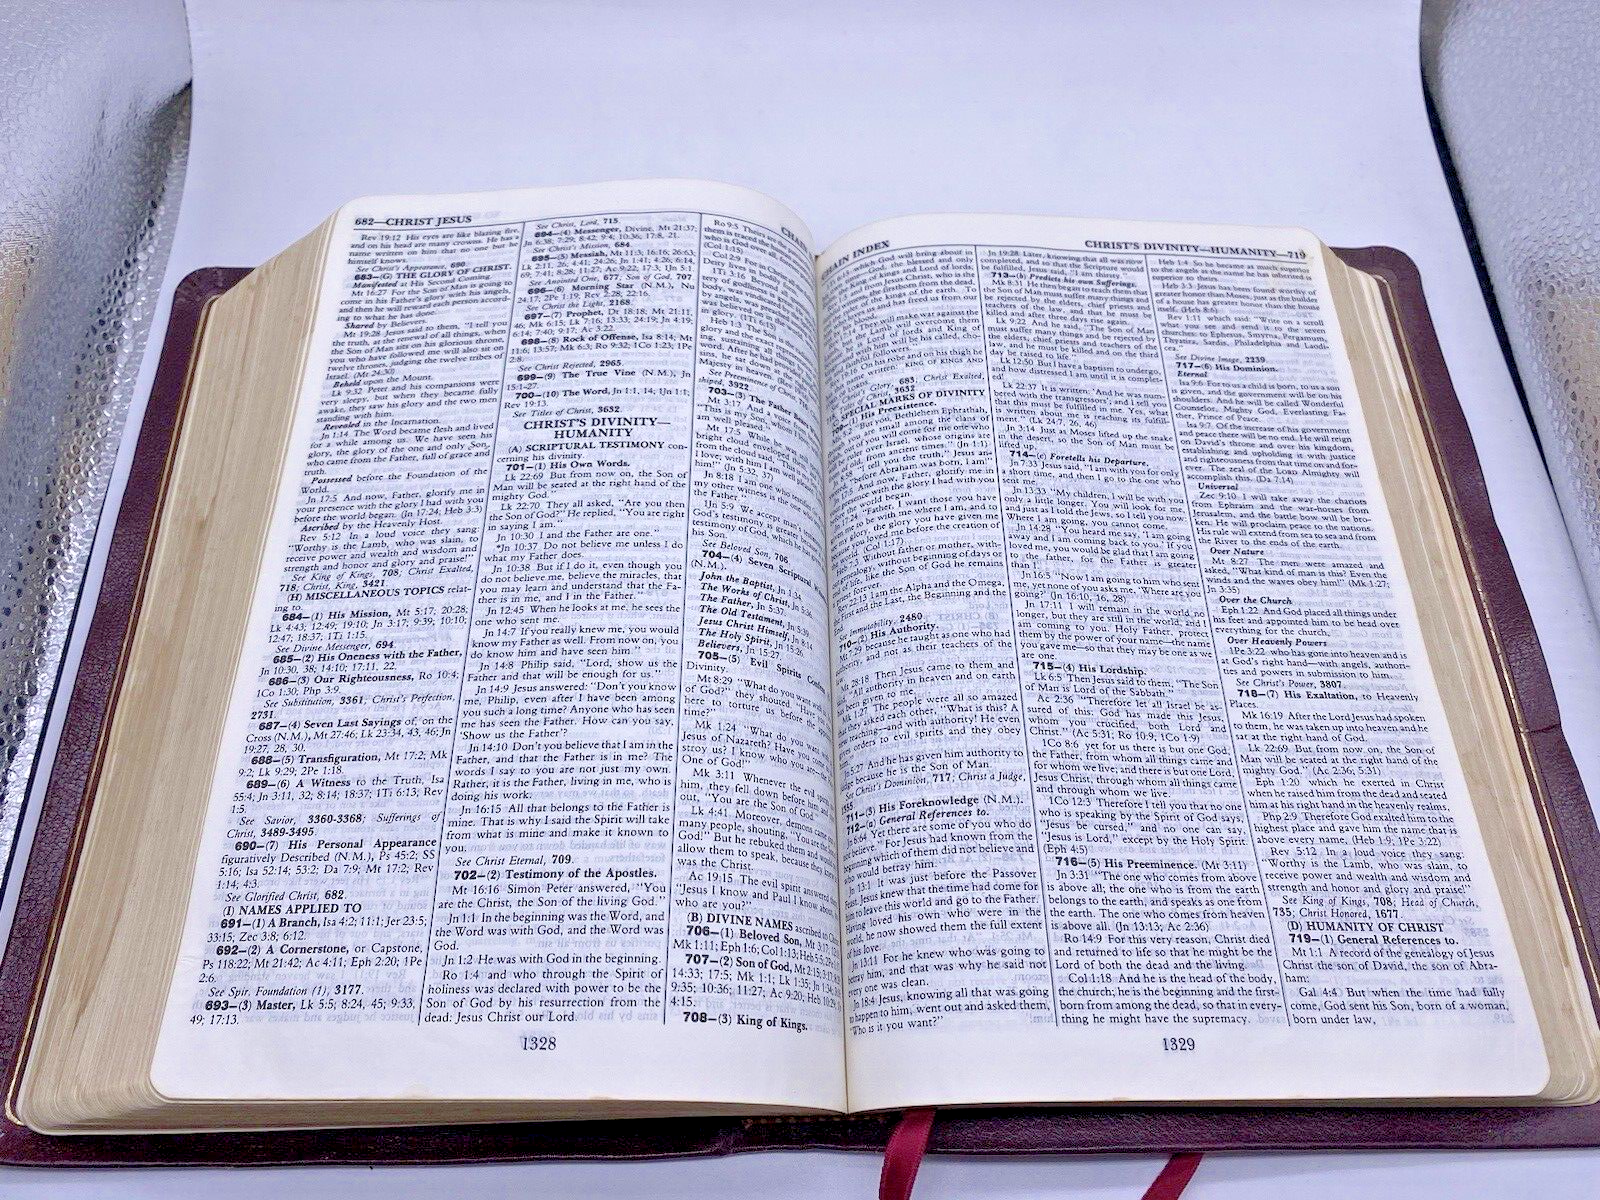 682—CHRIST JESUS
Rev 19:12 His eyes are like blazing fire,
and on his head are many crowns. He has a
name written on him that no one but he
himself knows.
See Christ's Appearance, 690.
683—(G) THE GLORY OF CHRIST.
Manifested at His Second Coming.
Mt 16:27 For the Son of Man is going to
come in his Father's glory with his angels,
and then he will reward each person accord-
ing to what he has done.
Shared by Believers.
Mt 19:28 Jesus said to them, "I tell you
the truth, at the renewal of all things, when
the Son of Man sits on his glorious throne,
you who have followed me will also sit on
twelve thrones, judging the twelve tribes of
Israel. (Mt 24:30)
Beheld upon the Mount.
Lk 9:32 Peter and his companions were
very sleepy, but when they became fully
awake, they saw his glory and the two men
standing with him.
Revealed in the Incarnation.
Jn 1:14 The Word became flesh and lived
for a while among us. We have seen his
glory, the glory of the one and only Son,
who came from the Father, full of grace and
truth.
Possessed before the Foundation of the
World.
Jn 17:5 And now, Father, glorify me in
your presence with the glory I had with you
before the world began. (Jn 17:24; Heb 3:3)
Ascribed by the Heavenly Host.
Rev 5:12 In a loud voice they sang:
"Worthy is the Lamb, who was slain, to
receive power and wealth and wisdom and
strength and honor and glory and praise!"
See King of Kings, 708; Christ Exalted,
718; Christ, King, 3421.
(H) MISCELLANEOUS TOPICS relat-
ing to.
684—(1) His Mission, Mt 5:17; 20:28;
Lk 4:43; 12:49; 19:10; Jn 3:17; 9:39; 10:10;
12:47; 18:37; 1Ti 1:15.
See Divine Messenger, 694.
685—(2) His Oneness with the Father,
Jn 10:30, 38; 14:10; 17:11, 22.
686—(3) Our Righteousness, Ro 10:4;
1Co 1:30; Php 3:9.
See Substitution, 3361, Christ's Perfection,
2731.
687—(4) Seven Last Sayings of, on the
Cross (N.M.), Mt 27:46; Lk 23:34, 43, 46; Jn
19:27, 28, 30.
688—(5) Transfiguration, Mt 17:2; Mk
9:2; Lk 9:29; 2Pe 1:18.
689—(6) A Witness to the Truth, Isa
55:4; Jn 3:11, 32; 8:14; 18:37; 1Ti 6:13; Rev
1:5.
See Savior, 3360-3368; Sufferings of
Christ, 3489-3495.
690—(7) His Personal Appearance
figuratively Described (N.M.), Ps 45:2; SS
5:16; Isa 52:14; 53:2; Da 7:9; Mt 17:2; Rev
1:14; 4:3.
See Glorified Christ, 682.
(I) NAMES APPLIED TO
691—(1) A Branch, Isa 4:2; 11:1; Jer 23:5;
33:15; Zec 3:8; 6:12.
692—(2) A Cornerstone, or Capstone,
Ps 118:22; Mt 21:42; Ac 4:11; Eph 2:20; 1Pe
2:6.
See Spir. Foundation (1), 3177.
693—(3) Master, Lk 5:5; 8:24, 45; 9:33,
49; 17:13.
See Christ, Lord, 715.
694—(4) Messenger, Divine, Mt 21:37;
Jn 6:38; 7:29; 8:42; 9:4; 10:36; 17:8, 21.
See Christ's Mission, 684.
695—(5) Messiah, Mt 11:3; 16:16; 26:63;
Lk 2:11, 26; 4:41; 24:26; Jn 1:41; 4:25, 29; 6:
69; 7:41; 8:28; 11:27; Ac 9:22; 17:3; 1Jn 5:1.
See Anointed of God, 677, Son of God, 707
696—(6) Morning Star (N.M.), Nu
24:17; 2Pe 1:19; Rev 2:28; 22:16.
See Christ the Light, 2168.
697—(7) Prophet, Dt 18:18; Mt 21:11,
46; Mk 6:15; Lk 7:16; 13:33; 24:19; Jn 4:19;
6:14; 7:40; 9:17; Ac 3:22.
698—(8) Rock of Offense, Isa 8:14; Mt
11:6; 13:57; Mk 6:3; Ro 9:32; 1Co 1:23; 1Pe
2:8.
See Christ Rejected, 2965.
699—(9) The True Vine (N.M.), Jn
15:1-27.
700—(10) The Word, Jn 1:1, 14; 1Jn 1:1;
Rev 19:13.
See Titles of Christ, 3632.
CHRIST'S DIVINITY—
HUMANITY
(A) SCRIPTURAL TESTIMONY con-
cerning his divinity.
701—(1) His Own Words.
Lk 22:69 But from now on, the Son of
Man will be seated at the right hand of the
mighty God."
Lk 22:70 They all asked, "Are you then
the Son of God?" He replied, "You are right
in saying I am."
Jn 10:30 I and the Father are one."
*Jn 10:37 Do not believe me unless I do
what my Father does.
Jn 10:38 But if I do it, even though you
do not believe me, believe the miracles, that
you may learn and understand that the Fa-
ther is in me, and I in the Father."
Jn 12:45 When he looks at me, he sees the
one who sent me.
Jn 14:7 If you really knew me, you would
know my Father as well. From now on, you
do know him and have seen him."
Jn 14:8 Philip said, "Lord, show us the
Father and that will be enough for us."
Jn 14:9 Jesus answered: "Don't you know
me, Philip, even after I have been among
you such a long time? Anyone who has seen
me has seen the Father. How can you say,
'Show us the Father'?
Jn 14:10 Don't you believe that I am in the
Father, and that the Father is in me? The
words I say to you are not just my own.
Rather, it is the Father, living in me, who is
doing his work.
Jn 16:15 All that belongs to the Father is
mine. That is why I said the Spirit will take
from what is mine and make it known to
you.
See Christ Eternal, 709.
702—(2) Testimony of the Apostles.
Mt 16:16 Simon Peter answered, "You
are the Christ, the Son of the living God."
Jn 1:1 In the beginning was the Word, and
the Word was with God, and the Word was
God.
Jn 1:2 He was with God in the beginning.
Ro 1:4 and who through the Spirit of
holiness was declared with power to be the
Son of God by his resurrection from the
dead: Jesus Christ our Lord.
Ro 9:5 Theirs are the
them is traced the human
who is God over all,
(Col 1:15)
Col 2:9 For in Christ
Deity lives in bodily
1Ti 3:16 Beyond all
tery of godliness is great:
body, was vindicated by
by angels, was preached
in glory. (1Ti 6:15)
Heb 1:3 The Son
glory and the exact
ing, sustaining all
word. After he had
sins, he sat down
Majesty in heaven.
See Preeminence of Christ
shiped, 3922
703—(3) The Father Bears
Mt 3:17 And a voice
"This is my Son,
well pleased."
Mt 17:5 While
bright cloud
from the cloud
I love; with him I am well
him!" (Jn 5:32, 37)
Jn 8:18 I am one who
my other witness is the
the Father."
1Jn 5:9 We accept man's
God's testimony is greater
testimony of God, which he
his Son.
See Beloved Son, 706.
704—(4) Seven Scriptural
(N.M.).
John the Baptist, Jn 1:34.
The Works of Christ, Jn 5:36
The Father, Jn 5:37
The Old Testament, Jn 5:39
Jesus Christ Himself, Jn 8:14
The Holy Spirit, Jn 15:26.
Believers, Jn 15:27.
705—(5) Evil Spirits
Divinity.
Mt 8:29 "What do you want
of God?" they shouted.
here to torture us before the
time?"
Mk 1:24 "What do you want
Jesus of Nazareth? Have you come
stroy us? I know who you are—the
One of God!"
Mk 3:11 Whenever the evil
him, they fell down before him
out, "You are the Son of God."
Lk 4:41 Moreover, demons came
many people, shouting, "You are the
God!" But he rebuked them and would
allow them to speak, because they knew
was the Christ.
Ac 19:15 The evil spirit answered
"Jesus I know and Paul I know about,
who are you?"
(B) DIVINE NAMES ascribed to
706—(1) Beloved Son, Mt 3:17;
Mk 1:11; Eph 1:6; Col 1:13; Heb 5:5
707—(2) Son of God, Mt 2:15; 3:17
14:33; 17:5; Mk 1:1; Lk 1:35; Jn 1:34
9:35; 10:36; 11:27; Ac 9:20; Heb 10:29
4:15.
708—(3) King of Kings.
1328
INDEX
CHRIST'S DIVINITY—HUMANITY—719
which God will bring about in
God, the blessed and only
of kings and Lord of lords;
of the kings of the earth. To
us and has freed us from our
They will make war against
the Lamb will overcome them
of lords and King of
will be his called, cho-
followers."
On his robe and on his thigh he
written: KING OF KINGS AND
Glory, 683; Christ Exalted,
Christ, 3632
SPECIAL MARKS OF DIVINITY
(1) His Preexistence.
Bethlehem Ephrathah,
small among the clans of
of you will come for me one who
Israel, whose origins are
ancient times." (Jn 1:1)
"I tell you the truth," Jesus an-
before Abraham was born, I am!"
And now, Father, glorify me in
with the glory I had with you
the world began.
"Father, I want those you have
to be with me where I am, and to
the glory you have given me
you loved me before the creation of
(Col 1:17)
Without father or mother, with-
genealogy, without beginning of days or
life, like the Son of God he remains
forever.
Rev 22:13 I am the Alpha and the Omega,
the First and the Last, the Beginning and the
See Immutability, 2480
710—(2) His Authority.
7:29 because he taught as one who had
authority, and not as their teachers of the
28:18 Then Jesus came to them and
"All authority in heaven and on earth
been given to me.
Mk 1:27 The people were all so amazed
that they asked each other, "What is this? A
teaching—and with authority! He even
orders to evil spirits and they obey
5:27 And he has given him authority to
judge because he is the Son of Man.
See Christ's Dominion, 717; Christ a Judge,
711—(3) His Foreknowledge (N.M.).
712—(a) General References to.
Jn 6:64 Yet there are some of you who do
not believe." For Jesus had known from the
beginning which of them did not believe and
who would betray him.
Jn 13:1 It was just before the Passover
Feast. Jesus knew that the time had come for
him to leave this world and go to the Father.
Having loved his own who were in the
world, he now showed them the full extent
of his love.
Jn 13:11 For he knew who was going to
betray him, and that was why he said not
every one was clean.
Jn 18:4 Jesus, knowing all that was going
to happen to him, went out and asked them,
"Who is it you want?"
Jn 19:28 Later, knowing that all was now
completed, and so that the Scripture would
be fulfilled, Jesus said, "I am thirsty."
713—(b) Predicts his own Sufferings.
Mk 8:31 He then began to teach them that
the Son of Man must suffer many things and
be rejected by the elders, chief priests and
teachers of the law, and that he must be
killed and after three days rise again.
Lk 9:22 And he said, "The Son of Man
must suffer many things and be rejected by
the elders, chief priests and teachers of the
law, and he must be killed and on the third
day be raised to life."
Lk 12:50 But I have a baptism to undergo,
and how distressed I am until it is complet-
ed!
Lk 22:37 It is written: 'And he was num-
bered with the transgressors'; and I tell you
that this must be fulfilled in me. Yes, what
is written about me is reaching its fulfill-
ment." (Lk 24:7, 26, 46)
Jn 3:14 Just as Moses lifted up the snake
in the desert, so the Son of Man must be
lifted up.
714—(c) Foretells his Departure.
Jn 7:33 Jesus said, "I am with you for only
a short time, and then I go to the one who
sent me.
Jn 13:33 "My children, I will be with you
only a little longer. You will look for me,
and just as I told the Jews, so I tell you now:
Where I am going, you cannot come.
Jn 14:28 "You heard me say, 'I am going
away and I am coming back to you.' If you
loved me, you would be glad that I am going
to the Father, for the Father is greater
than I.
Jn 16:5 "Now I am going to him who sent
me, yet none of you asks me, 'Where are you
going?' (Jn 16:10, 16, 28)
Jn 17:11 I will remain in the world no
longer, but they are still in the world, and I
am coming to you. Holy Father, protect
them by the power of your name the name
you gave me—so that they may be one as we
are one.
715—(4) His Lordship.
Lk 6:5 Then Jesus said to them, "The Son
of Man is Lord of the Sabbath."
Ac 2:36 "Therefore let all Israel be as-
sured of this: God has made this Jesus,
whom you crucified, both Lord and
Christ." (Ac 5:31; Ro 10:9; 1Co 1:9)
1Co 8:6 yet for us there is but one God,
the Father, from whom all things came and
for whom we live; and there is but one Lord,
Jesus Christ, through whom all things came
and through whom we live.
1Co 12:3 Therefore I tell you that no one
who is speaking by the Spirit of God says,
"Jesus be cursed," and no one can say,
"Jesus is Lord," except by the Holy Spirit.
(Eph 4:5)
716—(5) His Preeminence. (Mt 3:11)
Jn 3:31 "The one who comes from above
is above all; the one who is from the earth
belongs to the earth, and speaks as one from
the earth. The one who comes from heaven
is above all. (Jn 13:13; Ac 2:36)
Ro 14:9 For this very reason, Christ died
and returned to life so that he might be the
Lord of both the dead and the living.
Col 1:18 And he is the head of the body,
the church; he is the beginning and the first-
born from among the dead, so that in every-
thing he might have the supremacy.
Heb 1:4 So he became as much superior
to the angels as the name he has inherited is
superior to theirs.
Heb 3:3 Jesus has been found worthy of
greater honor than Moses, just as the builder
of a house has greater honor than the house
itself. (Heb 8:6)
Rev 1:11 which said: "Write on a scroll
what you see and send it to the seven
churches: to Ephesus, Smyrna, Pergamum,
Thyatira, Sardis, Philadelphia and Laodi-
cea."
See Divine Image, 2239.
717—(6) His Dominion.
Eternal
Isa 9:6 For to us a child is born, to us a son
is given, and the government will be on his
shoulders. And he will be called Wonderful
Counselor, Mighty God, Everlasting Fa-
ther, Prince of Peace.
Isa 9:7 Of the increase of his government
and peace there will be no end. He will reign
on David's throne and over his kingdom,
establishing and upholding it with justice
and righteousness from that time on and for-
ever. The zeal of the Lord Almighty will
accomplish this. (Da 7:14)
Universal
Zec 9:10 I will take away the chariots
from Ephraim and the war-horses from
Jerusalem, and the battle bow will be bro-
ken. He will proclaim peace to the nations.
His rule will extend from sea to sea and from
the River to the ends of the earth.
Over Nature
Mt 8:27 The men were amazed and
asked, "What kind of man is this? Even the
winds and the waves obey him!" (Mk 1:27;
Jn 3:35)
Over the Church
Eph 1:22 And God placed all things under
his feet and appointed him to be head over
everything for the church,
Over Heavenly Powers
1Pe 3:22 who has gone into heaven and is
at God's right hand—with angels, authori-
ties and powers in submission to him.
See Christ's Power, 3807.
718—(7) His Exaltation, to Heavenly
Places.
Mk 16:19 After the Lord Jesus had spoken
to them, he was taken up into heaven and he
sat at the right hand of God.
Lk 22:69 But from now on, the Son of
Man will be seated at the right hand of the
mighty God." (Ac 2:36; 5:31)
Eph 1:20 which he exerted in Christ
when he raised him from the dead and seated
him at his right hand in the heavenly realms,
Php 2:9 Therefore God exalted him to the
highest place and gave him the name that is
above every name, (Heb 1:9; 1Pe 3:22)
Rev 5:12 In a loud voice they sang:
"Worthy is the Lamb, who was slain, to
receive power and wealth and wisdom and
strength and honor and glory and praise!"
See King of Kings, 708; Head of Church,
735; Christ Honored, 1677.
(D) HUMANITY OF CHRIST
719—(1) General References to.
Mt 1:1 A record of the genealogy of Jesus
Christ the son of David, the son of Abra-
ham:
Gal 4:4 But when the time had fully
come, God sent his Son, born of a woman,
born under law,
1329